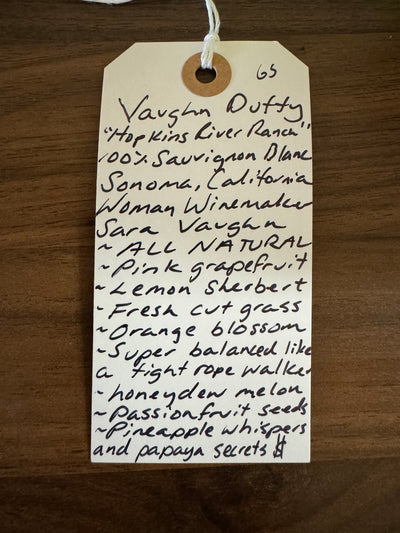 65
Vaughn Duffy
"Hopkins River Ranch"
100% Sauvignon Blanc
Sonoma, California
Woman Winemaker
Sara Vaughn
~ ALL NATURAL
~ Pink grapefruit
~ Lemon Sherbert
~ Fresh cut grass
~ Orange blossom
~ Super balanced like
a tight rope walker
~ honeydew melon
~ Passionfruit seeds
~ Pineapple whispers
and papaya secrets $